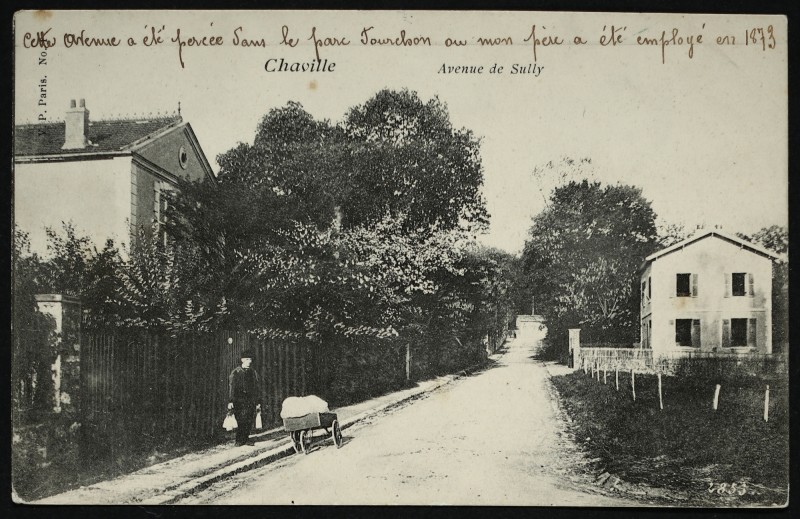 Cette Avenue a été percée dans le parc Fourchon où mon père a été employé en 1873
Chaville
Avenue de Sully
P. Paris. No